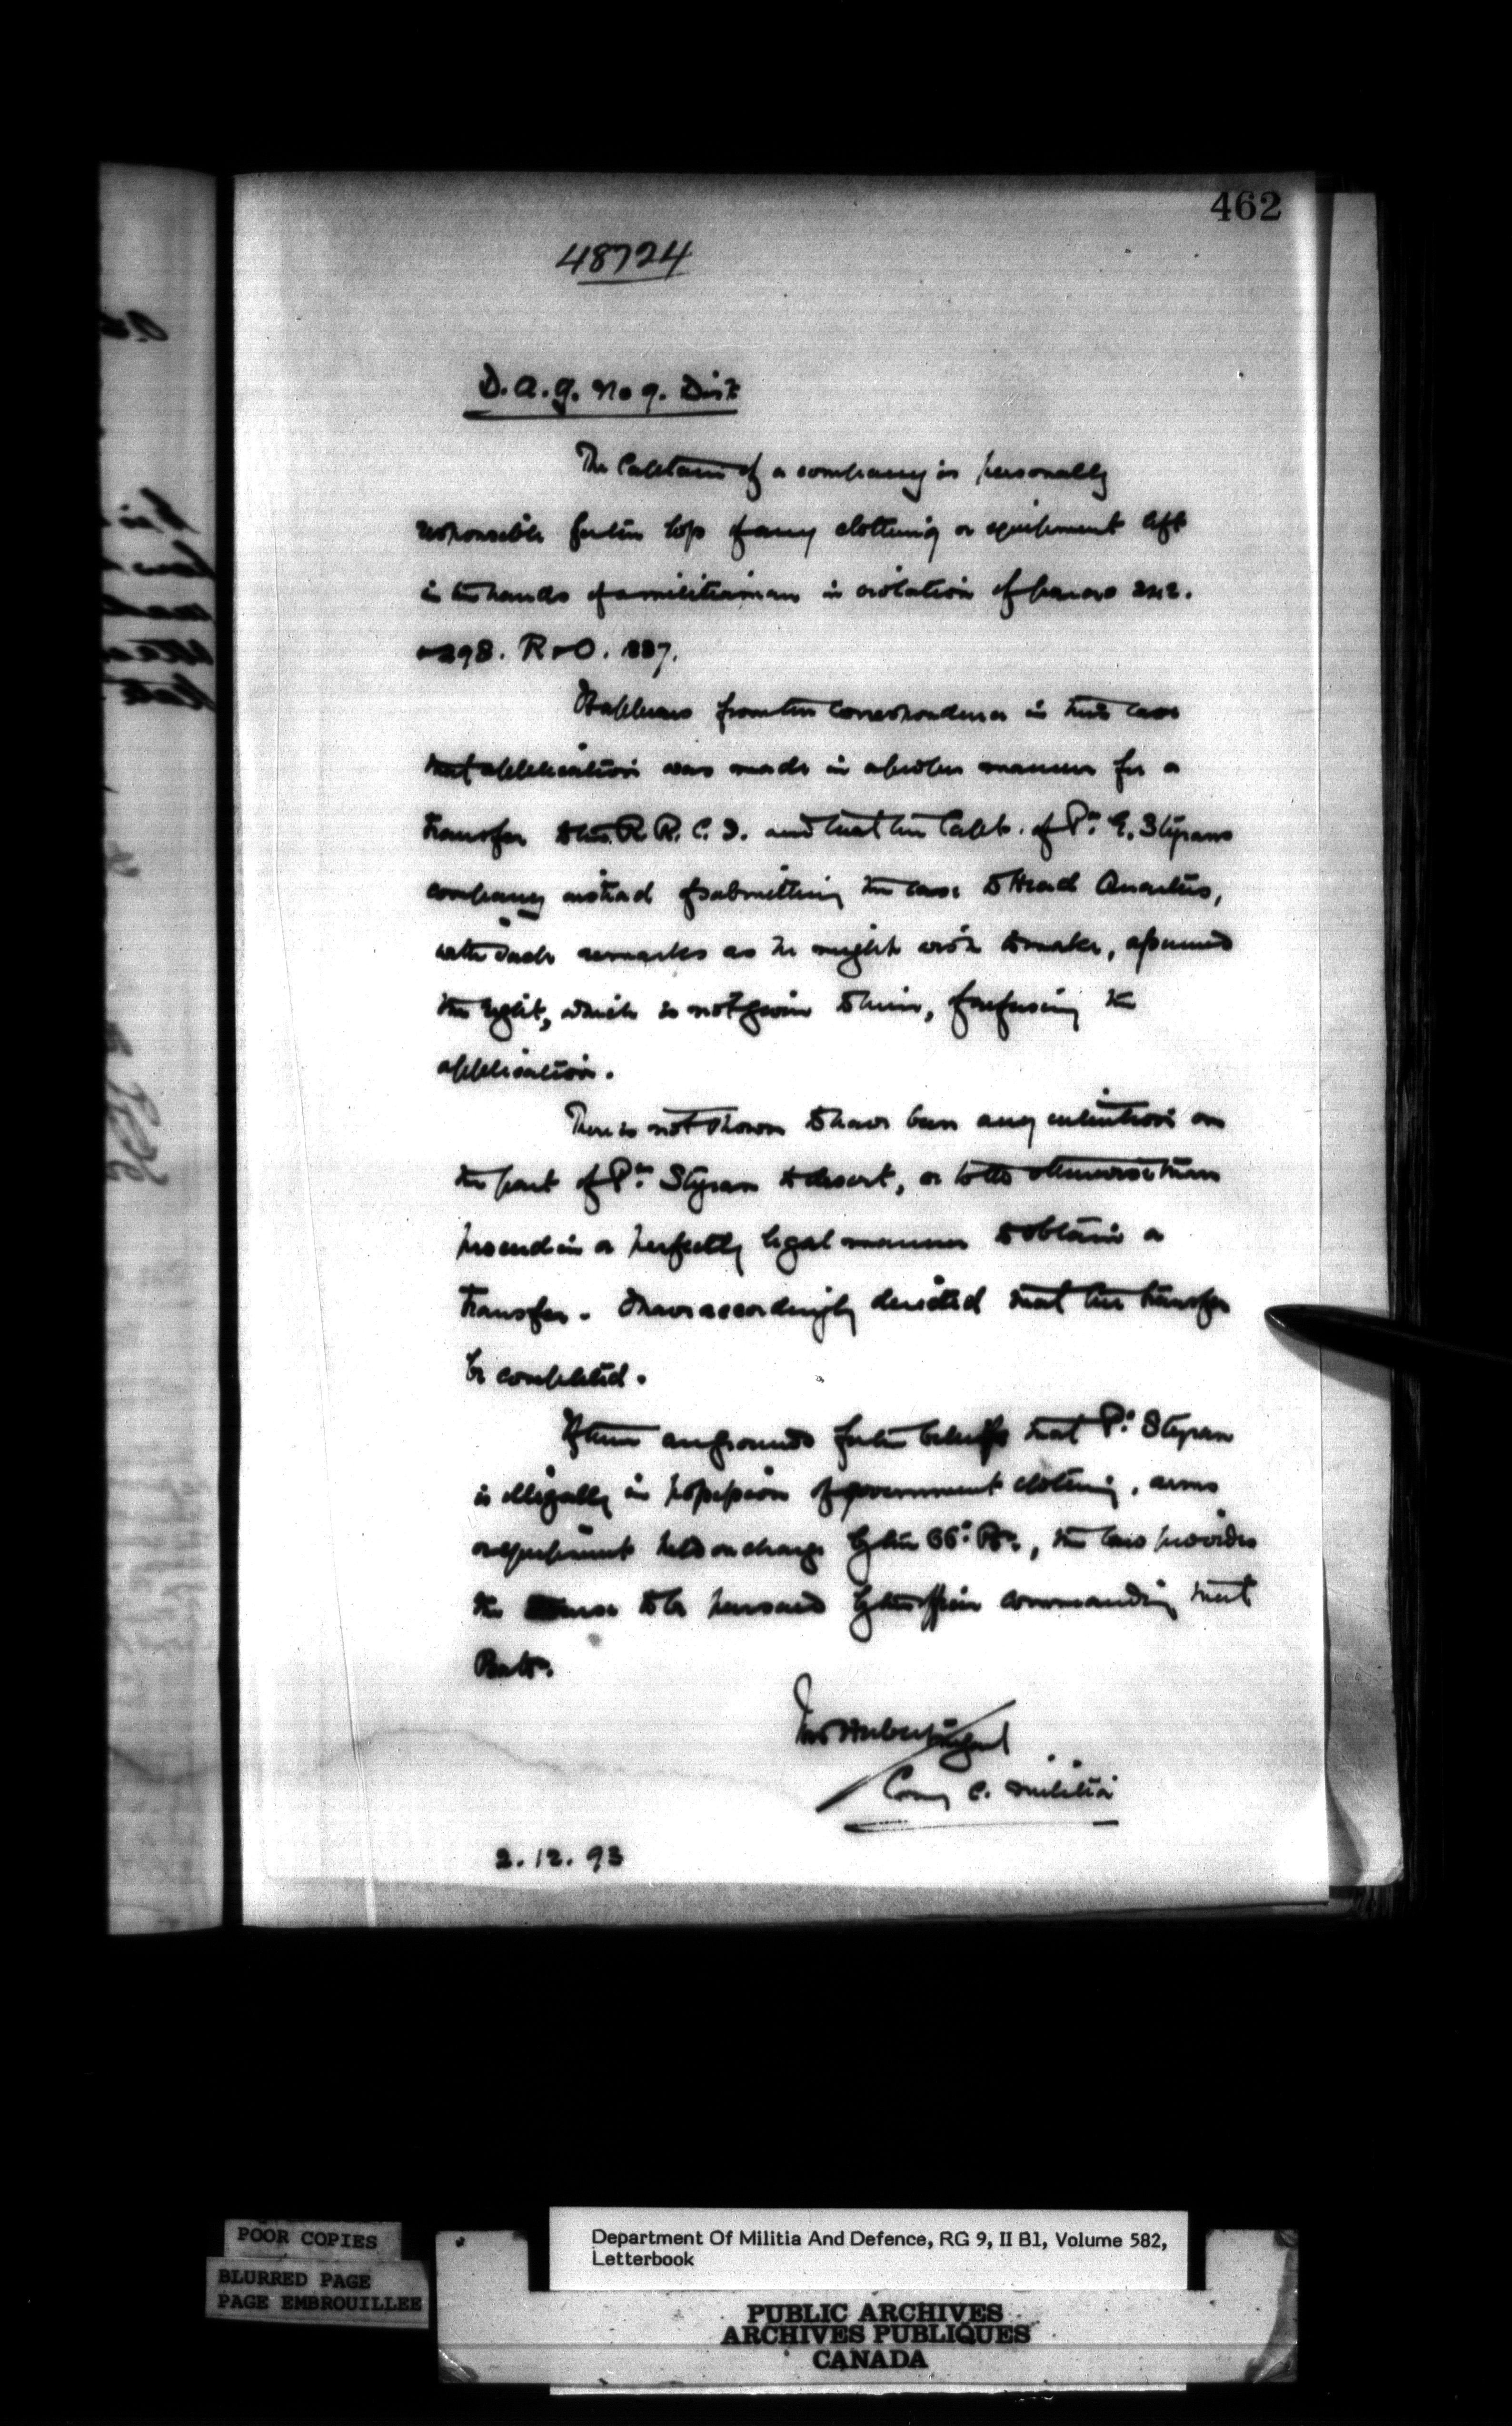 462
48724
D.A.G. No 9. Dist
The Captain of a company is personally
responsible for the loss of any clothing or equipment left
in the hands of a militiaman in violation of paras
& 298. R & O. 1887.
It appears from the correspondence in this case
that application was made in a proper manner for a
transfer to the R.R.C.I. and that the Capt. of Pte. E. Styrans
company instead of submitting the case to Head Quarters,
with such remarks as he might wish to make, assumed
the right, which is not given to him, of refusing the
application.
There is not shown to have been any intention on
the part of Pte. Styran to desert, or to do otherwise than
proceed in a perfectly legal manner to obtain a
transfer. I have accordingly decided that the transfer
be completed.
If there are grounds for the belief that Pte. Styran
is illegally in possession of government clothing, arms
or equipment held on charge by the 66th Bn., the law provides
the course to be pursued by the officer commanding that
Batn.
Com'g C. Militia
2.12.93
POOR COPIES
BLURRED PAGE
PAGE EMBROUILLEE
Department Of Militia And Defence, RG 9, II B1, Volume 582,
Letterbook
PUBLIC ARCHIVES
ARCHIVES PUBLIQUES
CANADA